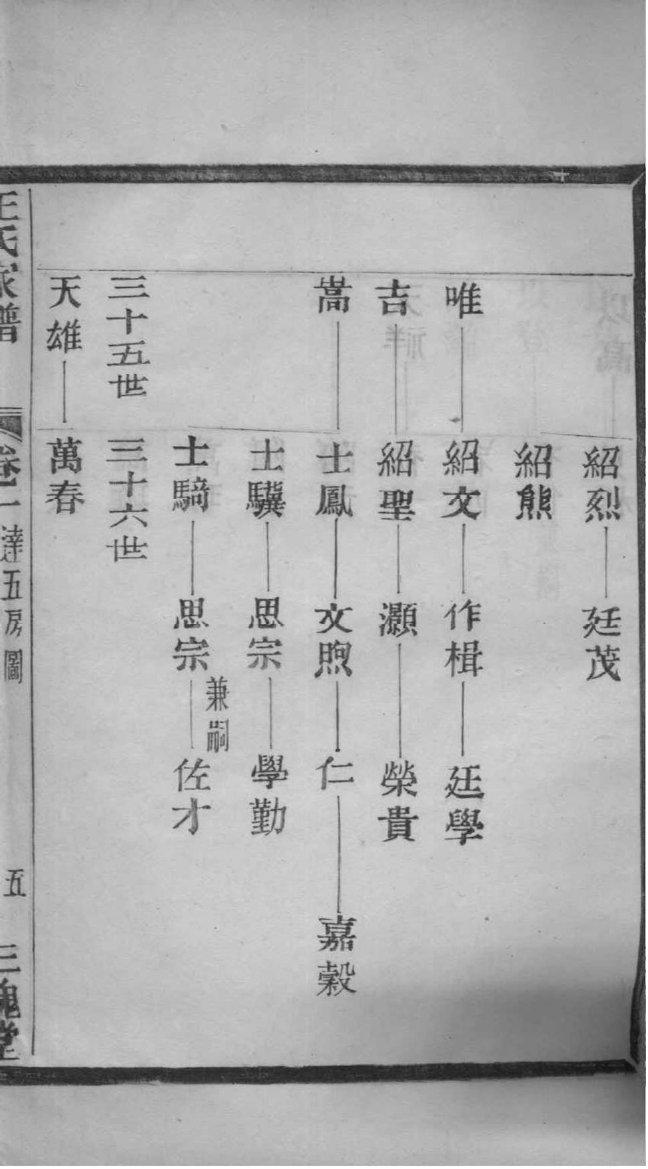 紹烈 廷茂
紹熊
唯 紹文 作楫 廷學
吉 紹聖 灝 榮貴
嵩 士鳳 文煦 仁 嘉穀
士驥 思宗 學勤
士騎 思宗 兼嗣 佐才
三十五世 三十六世
天雄 萬春
王氏家譜 卷一 達五房圖 五 三槐堂